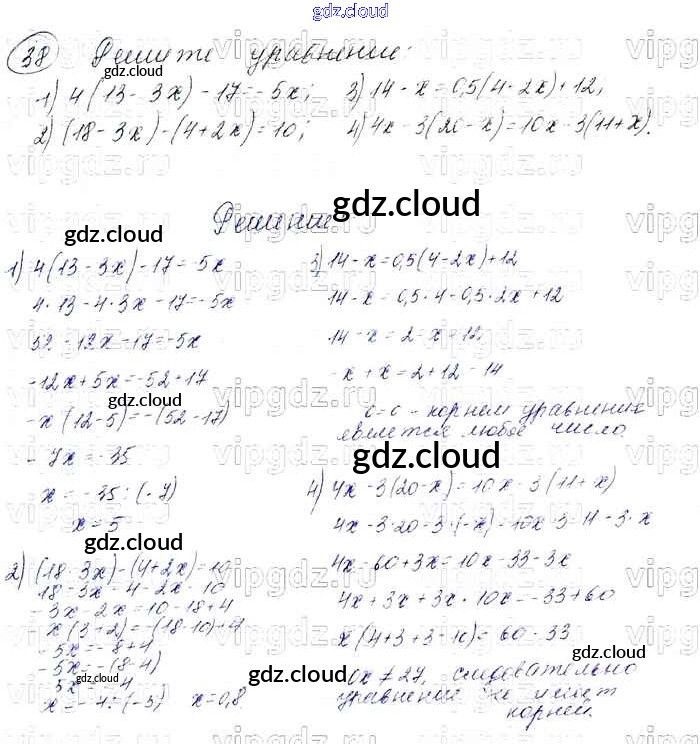 gdz.cloud
38 Решите уравнение:
1) 4(13 - 3x) - 17 = -5x; 3) 14 - x = 0,5(4 - 2x) + 12;
2) (18 - 3x) - (4 + 2x) = 10; 4) 4x - 3(20 - x) = 10x - 3(11 + x).
Решение
1) 4(13 - 3x) - 17 = -5x
4 · 13 - 4 · 3x - 17 = -5x
52 - 12x - 17 = -5x
-12x + 5x = -52 + 17
-x(12 - 5) = -(52 - 17)
-7x = -35
x = -35 : (-7)
x = 5
2) (18 - 3x) - (4 + 2x) = 10
18 - 3x - 4 - 2x = 10
-3x - 2x = 10 - 18 + 4
x(3 + 2) = -(18 - 10) + 4
-5x = -8 + 4
-5x = -(8 - 4)
5x = 4
x = -4 : (-5) x = 0,8
3) 14 - x = 0,5(4 - 2x) + 12
14 - x = 0,5 · 4 - 0,5 · 2x + 12
14 - x = 2 - x + 12
-x + x = 2 + 12 - 14
0 = 0 - корнем уравнения
является любое число.
4) 4x - 3(20 - x) = 10x - 3(11 + x)
4x - 3 · 20 - 3 · (-x) = 10x - 3 · 11 - 3 · x
4x - 60 + 3x = 10x - 33 - 3x
4x + 3x + 3x - 10x = -33 + 60
x(4 + 3 + 3 - 10) = 60 - 33
0x ≠ 27, следовательно
уравнение не имеет
корней.